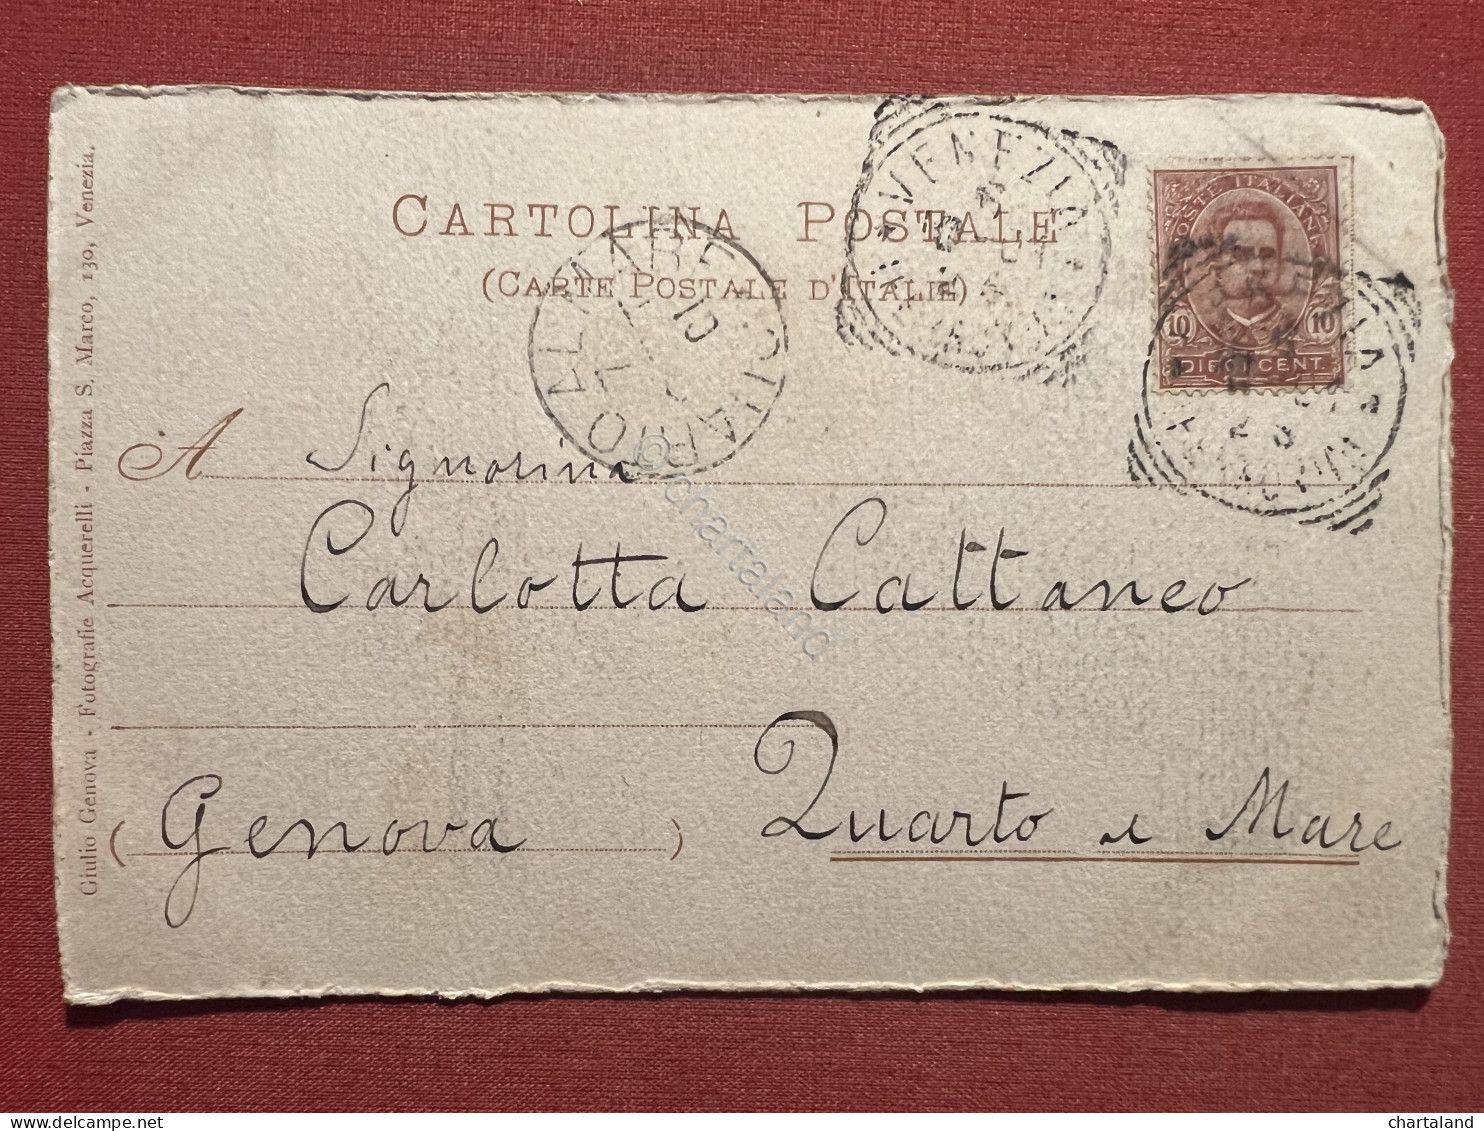 Giulio Genova - Fotografie Acquerelli - Piazza S. Marco, 130, Venezia.
CARTOLINA POSTALE
(CARTE POSTALE D'ITALIE)
VENEZIA
POSTE ITALIANE
10 10
DIECI CENT.
QUARTO AL MARE
A Signorina
Carlotta Cattaneo
(Genova) Quarto al Mare
© chartaland
chartaland